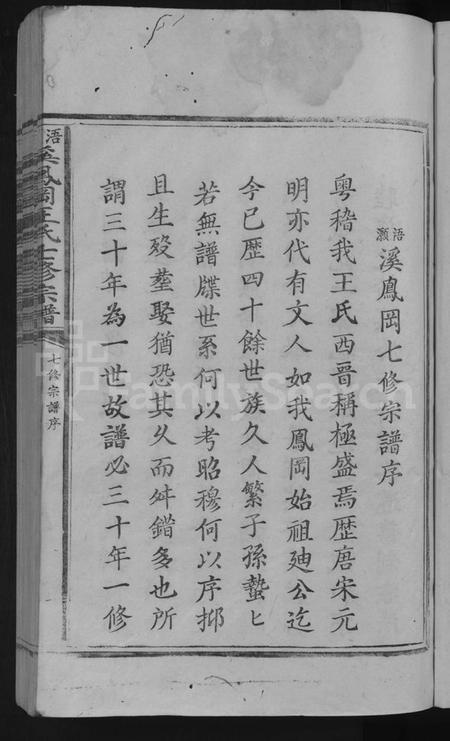 語灝溪鳳岡七修宗譜序
粵稽我王氏西晋稱極盛焉歷唐宋元
明亦代有文人如我鳳岡始祖廸公迄
今已歷四十餘世族久人繁子孫蟄ヒ
若無譜牒世系何以考昭穆何以序抑
且生殁塟娶猶恐其久而舛錯多也所
謂三十年為一世故譜必三十年一修
語溪鳳岡王氏七修宗譜
七修宗譜序
FamilySearch